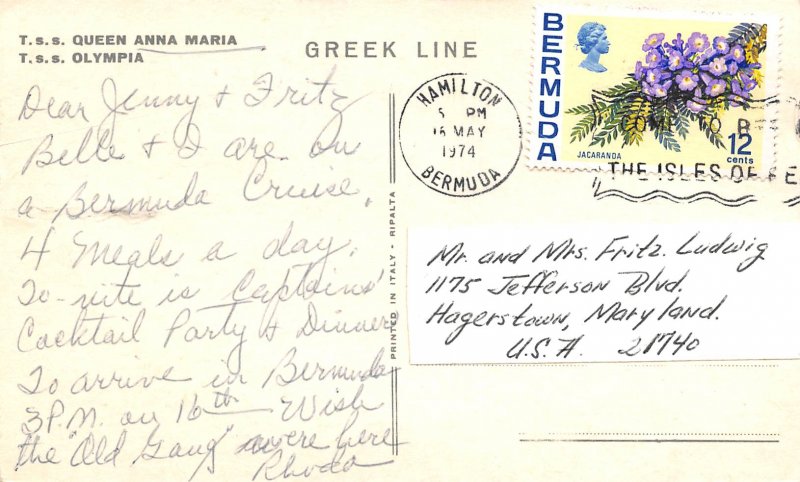 T.s.s. QUEEN ANNA MARIA
T.s.s. OLYMPIA
GREEK LINE
Dear Jenny & Fritz
Belle & I are on
a Bermuda Cruise,
4 Meals a day.
To-nite is Captains'
Cocktail Party & Dinner
To arrive in Bermuda
3 P.M. on 16th Wish
the "Old Gang" were here
Rhoda
PRINTED IN ITALY - RIPALTA
HAMILTON
PM
16 MAY
1974
BERMUDA
BERMUDA
JACARANDA
12
cents
TO
THE ISLES OF
Mr. and Mrs. Fritz Ludwig
1175 Jefferson Blvd.
Hagerstown, Maryland.
U.S.A. 21740